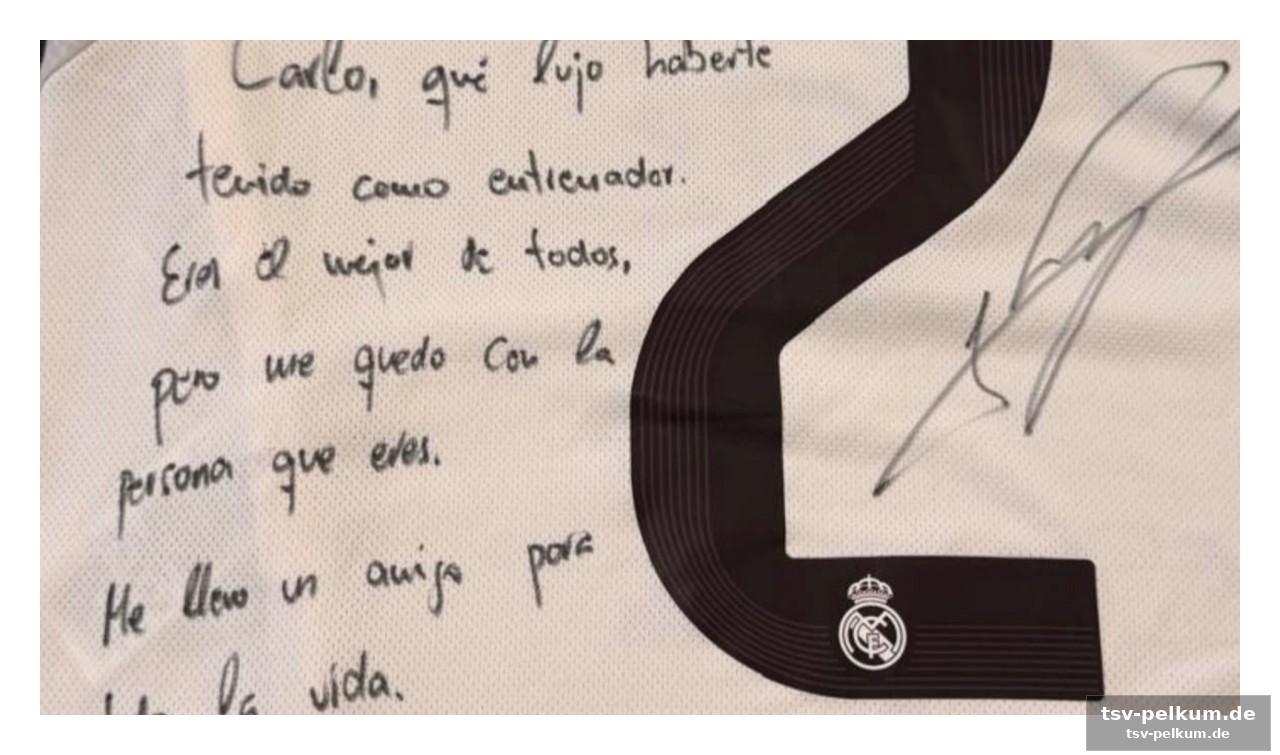 Carlo, qué lujo haberte
tenido como entrenador.
Eras el mejor de todos,
pero me quedo con la
persona que eres.
Me llevo un amigo para
la vida.
2
tsv-pelkum.de
tsv-pelkum.de